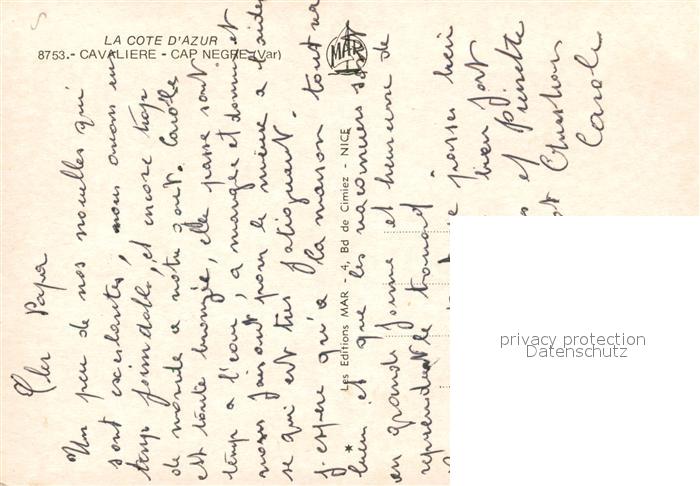 LA COTE D'AZUR
8753.- CAVALIERE - CAP NEGRE (Var)
MAR
Les Editions MAR - 4, Bd de Cimiez - NICE
Cher Papa
Un peu de nos nouvelles qui
sont excelantes, nous avons un
temps formidable, et encore trop
de monde a notre gout. Carole
est toute bronzée, elle passe sont
temp a l'eau, a manger et dormir et
nous faisont pour le même a l'aider
se qui est très fatiguant.
j'espère qu'a la maison tout va
bien et que les vacanciers sont
en grande forme et heureuse de
reprendre le travail
passes bien
bien fort
et Pierrette
Christian
Carole
privacy protection
Datenschutz